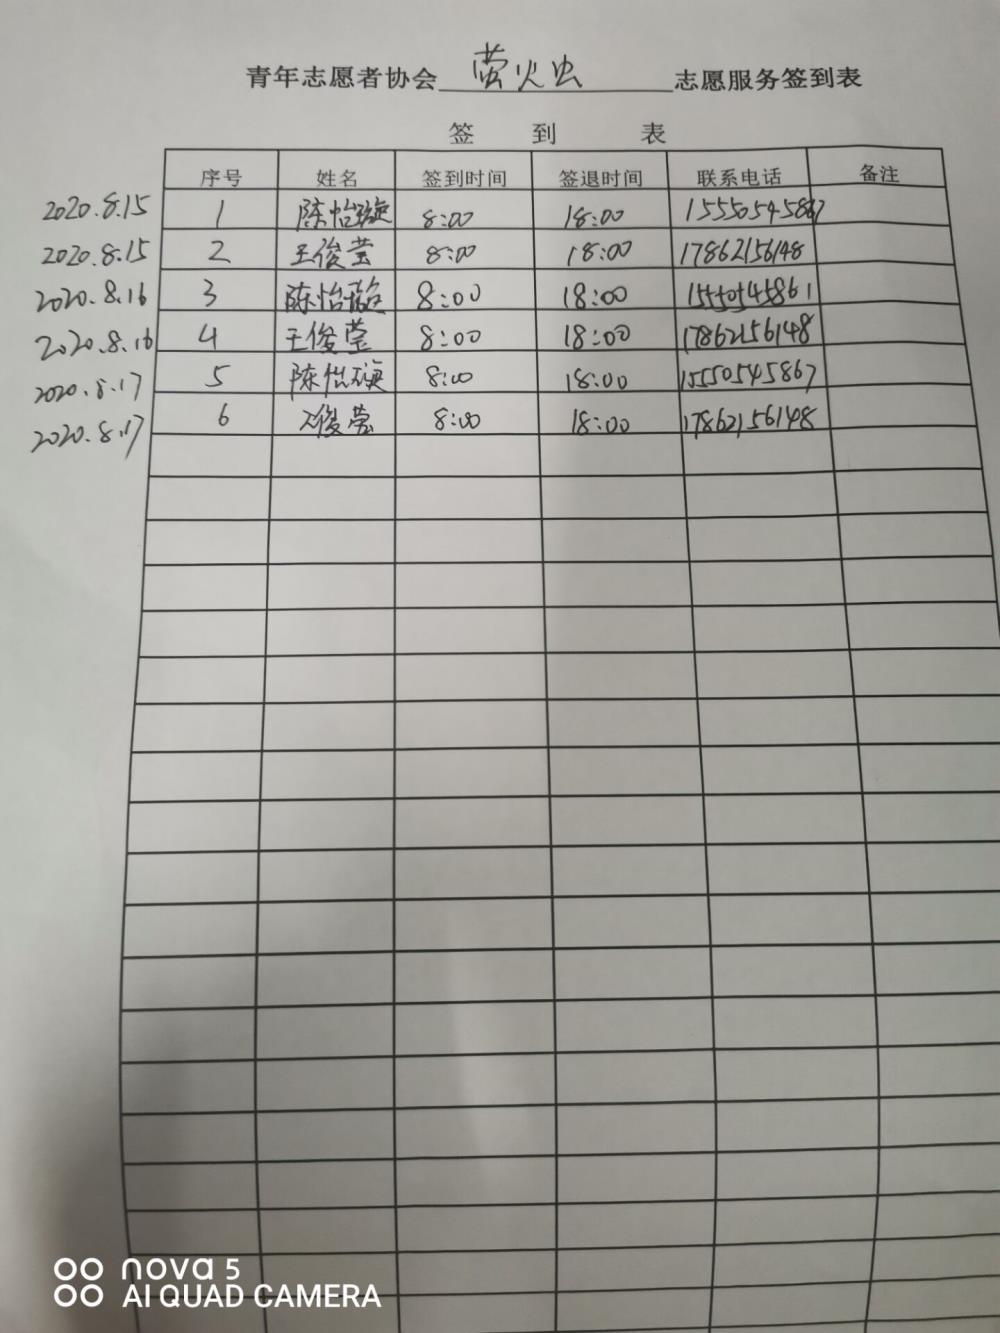 青年志愿者协会 萤火虫 志愿服务签到表
签 到 表
序号 姓名 签到时间 签退时间 联系电话 备注
2020.8.15 1 陈怡璇 8:00 18:00 15550545867
2020.8.15 2 王俊莹 8:00 18:00 17862156148
2020.8.16 3 陈怡璇 8:00 18:00 15550545861
2020.8.16 4 王俊莹 8:00 18:00 17862156148
2020.8.17 5 陈怡璇 8:00 18:00 15550545867
2020.8.17 6 王俊莹 8:00 18:00 17862156148
nova 5
AI QUAD CAMERA